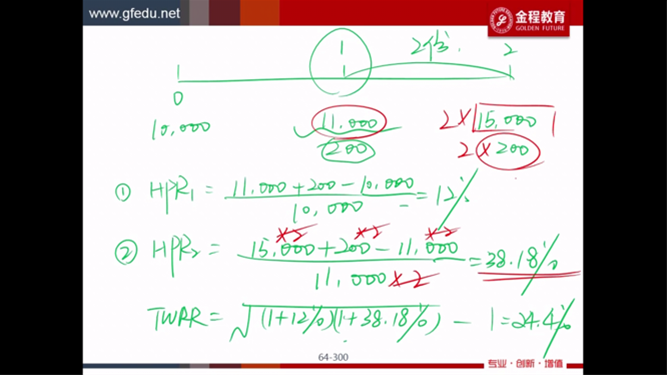 www.gfedu.net
金程教育
GOLDEN FUTURE
1 2份. 2
0
10,000 11,000 2×15,000
200 2×200
① HPR₁ = (11,000+200-10,000)/10,000 = 12%
×2 ×2 ×2
② HPR₂ = (15,000+200-11,000)/(11,000×2) = 38.18%
TWRR = √(1+12%)(1+38.18%) - 1 = 24.4%
64-300
专业·创新·增值